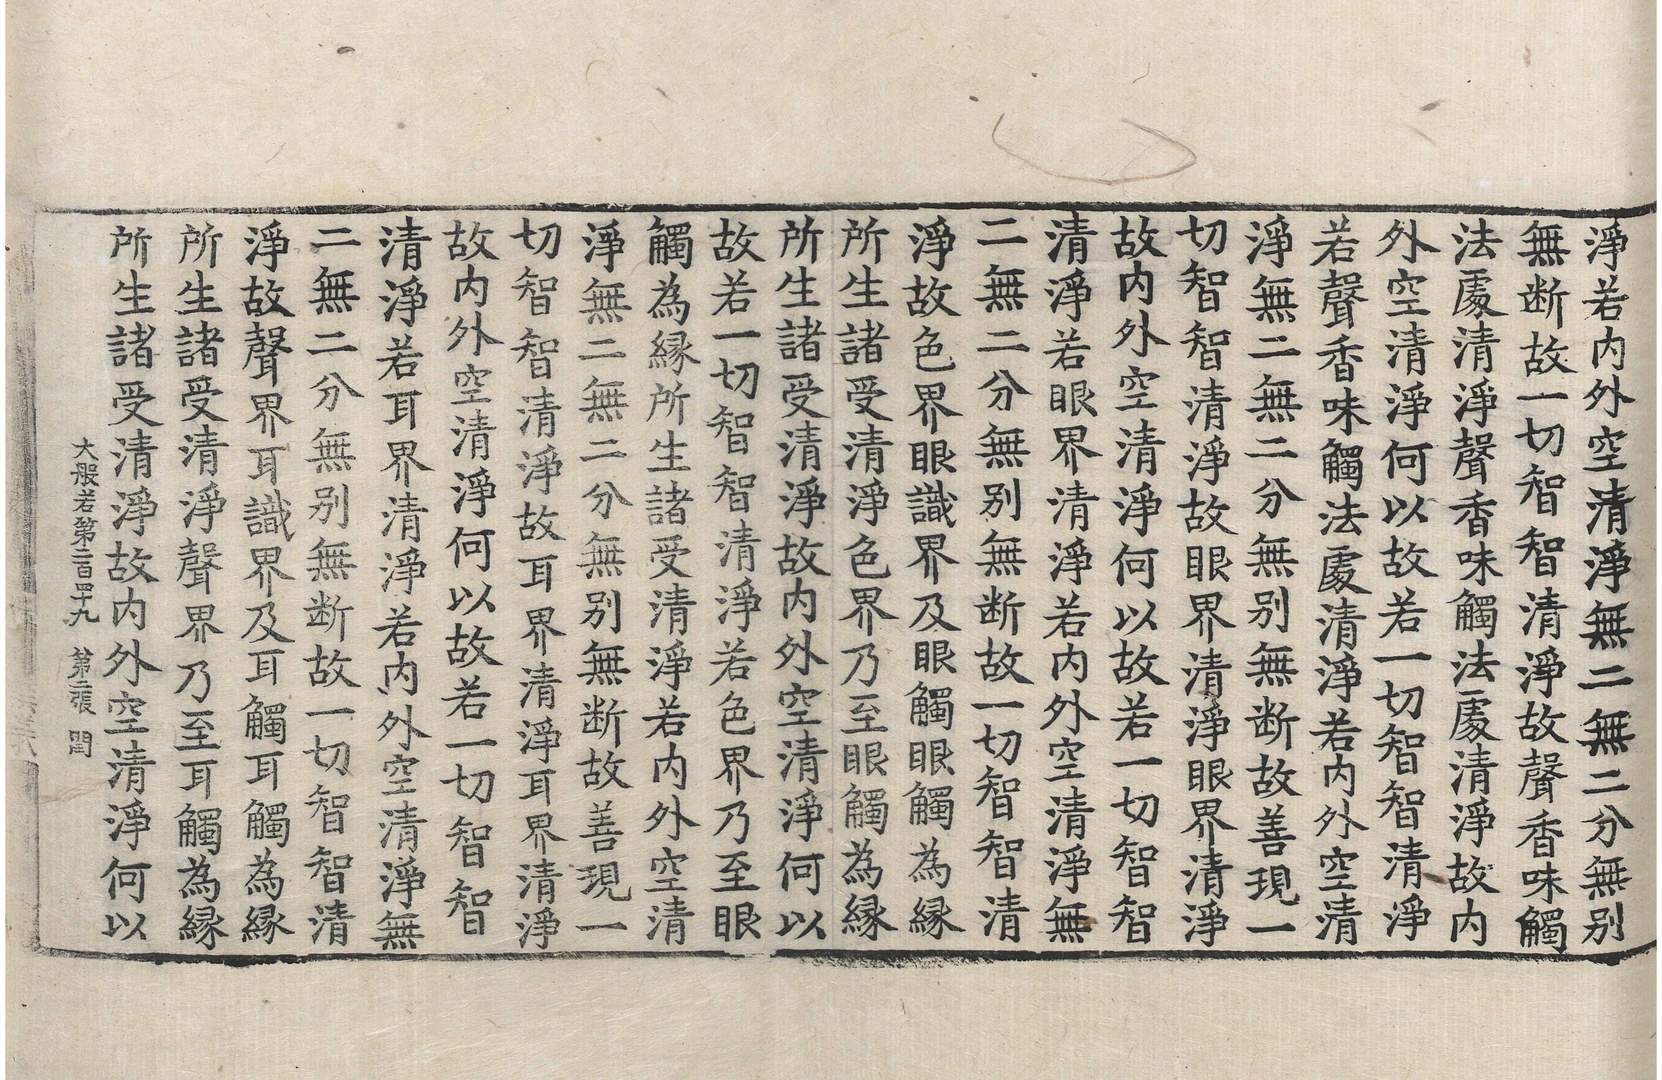 淨若内外空清淨無二無二分無别
無断故一切智智清淨故聲香味觸
法處清淨聲香味觸法處清淨故内
外空清淨何以故若一切智智清淨
若聲香味觸法處清淨若内外空清
淨無二無二分無别無断故善現一
切智智清淨故眼界清淨眼界清淨
故内外空清淨何以故若一切智智
清淨若眼界清淨若内外空清淨無
二無二分無别無断故一切智智清
淨故色界眼識界及眼觸眼觸為縁
所生諸受清淨色界乃至眼觸為縁
所生諸受清淨故内外空清淨何以
故若一切智智清淨若色界乃至眼
觸為縁所生諸受清淨若内外空清
淨無二無二分無别無断故善現一
切智智清淨故耳界清淨耳界清淨
故内外空清淨何以故若一切智智
清淨若耳界清淨若内外空清淨無
二無二分無别無断故一切智智清
淨故聲界耳識界及耳觸耳觸為縁
所生諸受清淨聲界乃至耳觸為縁
所生諸受清淨故内外空清淨何以
大般若第二百四十九 第二張 閏